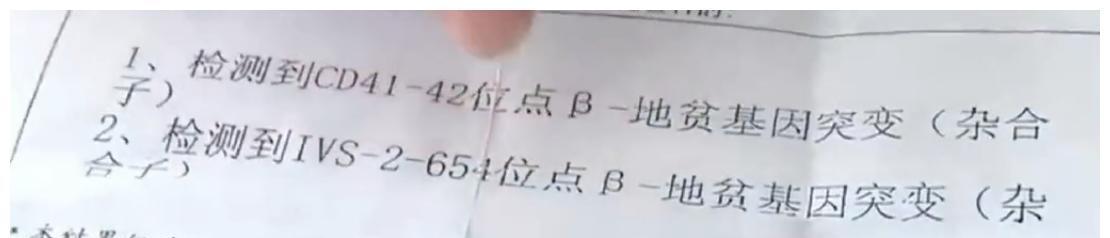 1、检测到CD41-42位点β-地贫基因突变（杂合
子）
2、检测到IVS-2-654位点β-地贫基因突变（杂
合子）